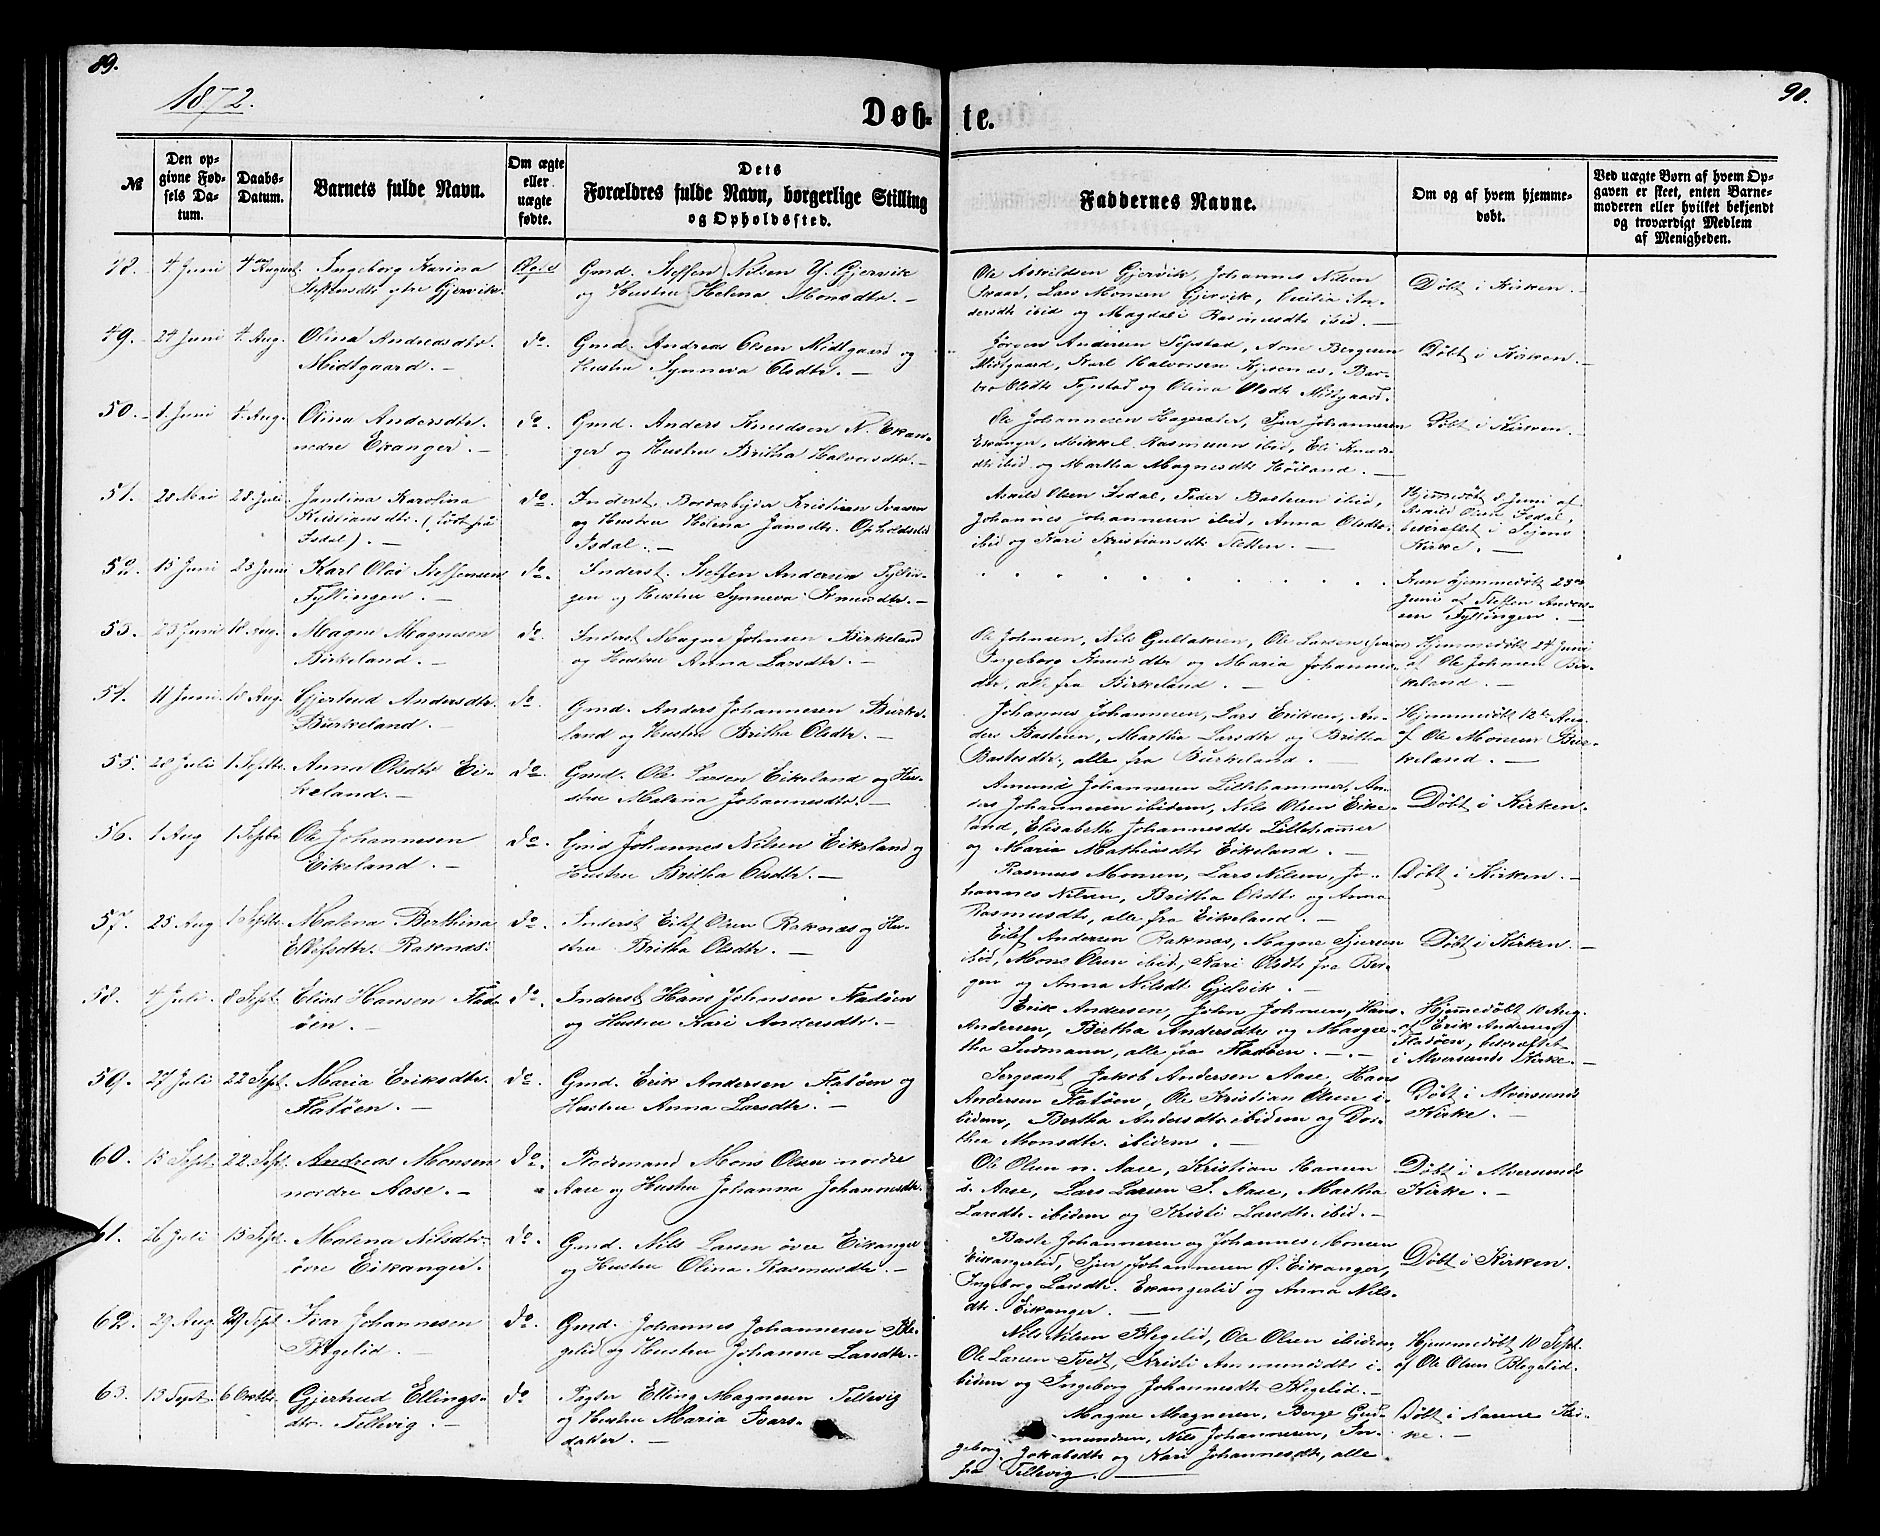 89.
90.
1872.
Døb-
te.
№
Den op-
givne Fød-
sels Da-
tum.
Daabs-
Datum.
Barnets fulde Navn.
Om ægte
eller
uægte
fødte.
Dets
Forældres fulde Navn, borgerlige Stilling
og Opholdssted.
Faddernes Navne.
Om og af hvem hjemme-
døbt.
Ved uægte Børn af hvem Op-
gaven er skeet, enten Barne-
moderen eller hvilket bekjendt
og troværdigt Medlem
af Menigheden.
48. 4 Juni 4 August Ingeborg Karina
Steffensdtr ytre Gjervik.
Gmd. Steffen Nilsen Y. Gjervik
og Hustru Helena Monsdtr. —
Ole Askildsen Gjervik, Johannes Nilsen
Lars Monsen Gjervik, Cecilia An-
dersdtr ibid og Magdali Rasmusdtr ibid. —
Døbt i Kirken. —
49. 24 Juni 4 Aug. Olina Andreasdtr.
Midtgaard. —
do.
Gmd. Andreas Olsen Midtgaard og
Hustru Synneva Olsdtr. —
Jørgen Andersen Topstad, Arne Bergesen
Midtgaard, Karl Halvorsen
Olsdtr og Olina Olsdtr Midtgaard.
Døbt i Kirken. —
50. 1 Juni 4 Aug. Olina Andersdtr.
nedre Eikanger. —
do.
Gmd. Anders Knudsen N. Eikan-
ger og Hustru Britha Halvorsdtr. —
Ole Johannesen Hagesæter, Sjur Johannesen
Eikanger, Mikkel Rasmusen ibid, Eli Knuds-
dtr ibid og Martha Magnesdtr Høiland. —
Døbt i Kirken.
51. 28 Mai 28 Juli Jandina Karolina
Kristiansdtr. (født på
Isdal). —
do.
Inderst, Bordarbejder Kristian Ivarsen
og Hustru Helena Jansdtr. Opholdssted
Isdal. —
Olsen Isdal, Peder Bastesen ibid,
Johannes Johannesen ibid, Anna Olsdtr.
ibid og Kari Kristiansdtr Sletten. —
Hjemmedøbt 8 Juni af
Olsen Isdal,
bekræftet i Sejens
Kirke. —
52. 15 Juni 23 Juni Karl Olai Steffensen
Fyllingen. —
do.
Inderst. Steffen Andersen Fyllin-
gen og Hustru Synneva Knudsdtr. —
Kun hjemmedøbt 23de
Juni af Steffen Anders-
sen Fyllingen. —
53. 23 Juni 18 Aug. Magne Magnesen
Birkeland. —
do.
Inderst Magne Johnsen Birkeland
og Hustru Anna Larsdtr. —
Ole Johnsen, Nils Gullaksen, Ole Larsen
Ingeborg Knudsdtr og Maria Johannes-
dtr, alle fra Birkeland. —
Hjemmedøbt 24 Juni
af Ole Johnsen Bir-
keland. —
54. 11 Juni 18 Aug. Gjertrud Andersdtr.
Birkeland. —
do.
Gmd. Anders Johannesen Birke-
land og Hustru Britha Olsdtr. —
Johannes Johannesen, Lars Eriksen, An-
ders Bastesen, Martha Larsdtr og Britha
Bastesdtr, alle fra Birkeland. —
Hjemmedøbt 12te Aug
af Ole Monsen Bir-
keland. —
55. 28 Juli 1 Septbr. Anna Olsdtr Ei-
keland. —
do.
Gmd. Ole Larsen Eikeland og Hu-
stru Malena Johannesdtr. —
Amund Johannesen Lillehammer, An-
ders Johannesen ibidem, Nils Olsen Eike-
land, Elisabeth Johannesdtr Lillehammer
og Maria Mathiasdtr Eikeland. —
Døbt i Kirken.
56. 1 Aug 1 Septbr Ole Johannesen
Eikeland. —
do.
Gmd Johannes Nilsen Eikeland og
Hustru Britha Olsdtr. —
Rasmus Monsen, Lars Nilsen, Jo-
hannes Nilsen, Britha Olsdtr og Anna
Rasmusdtr, alle fra Eikeland. —
Døbt i Kirken. —
57. 25 Aug 1 Septbr. Malena Berthina
Eilefsdtr. Raknæs.
do.
Inderst Eilef Olsen Raknæs og Hu-
stru Britha Olsdtr. —
Eilef Andersen Raknæs, Magne Sjursen
ibid, Mons Olsen ibid, Kari Olsdtr fra Ber-
gen og Anna Nilsdtr Gjelvik. —
Døbt i Kirken. —
58. 4 Juli. 8 Sept. Elias Hansen Flat-
øen. —
do.
Inderst Hans Johnsen Flatøen
og Hustru Kari Andersdtr. —
Erik Andersen, John Johnsen, Hans
Andersen, Bertha Andersdtr og Margre-
tha Susmann, alle fra Flatøen. —
Hjemmedøbt 10 Aug.
af Erik Andersen
Flatøen, bekræftet
i Alversunds Kirke. —
59. 27 Juli 22 Sept. Maria Eriksdtr.
Flatøen. —
do.
Gmd. Erik Andersen Flatøen og
Hustru Anna Larsdtr. —
Sergeant Jakob Andersen Aase, Hans
Andersen Flatøen, Ole Kristian Olsen i-
bidem, Bertha Andersdtr ibidem og Dor-
thea Monsdtr. ibidem. —
Døbt i Alversunds
Kirke. —
60. 15 Sept. 22 Sept. Andreas Monsen
nordre Aase. —
do.
Pladsmand Mons Olsen nordre
Aase og Hustru Johanna Johannesdtr.
Ole Olsen n. Aase, Kristian Hansen
s. Aase, Lars Larsen S. Aase, Martha
Larsdtr. ibidem og Kristi Larsdtr. ibid. —
Døbt i Alversunds
Kirke. —
61. 26 Juli 15 Sept. Malena Nilsdtr.
øvre Eikanger.
do.
Gmd. Nils Larsen øvre Eikanger
og Hustru Olina Rasmusdtr. —
Baste Johannesen og Johannes Monsen
Eikangerlid, Sjur Johannesen Ø. Eikanger,
Ingeborg Larsdtr. Eikangerlid og Anna Nils-
dtr. Eikanger. —
Døbt i Kirken.
62. 29 Aug. 29 Sept. Ivar Johannesen
Blegelid. —
do.
Gmd. Johannes Johannesen Ble-
gelid og Hustru Johanna Larsdtr. —
Nils Nilsen Blegelid, Ole Olsen ibidem,
Ole Larsen Tvedt, Kristi Ammundsdtr i-
bidem og Ingeborg Johannesdtr Blegelid. —
Hjemmedøbt 10 Sept.
af Ole Olsen Blegelid.
63. 13 Sept. 6 Octbr. Gjertrud Ellings-
dtr. Tellevig. —
do
Elling Magnesen Tellevig
og Hustru Maria Ivars-
datter. —
Magne Magnesen, Berge Gud-
mundsen, Nils Johannesen, In-
geborg Jakobsdtr og Kari Johannesdtr, alle
fra Tellevig. —
Døbt i Aasene Kir-
ke. —